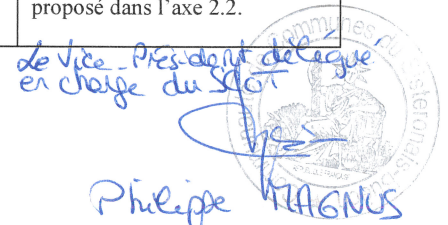 proposé dans l'axe 2.2.
Le Vice-Président délégué
en charge du SCOT
Philippe MAGNUS